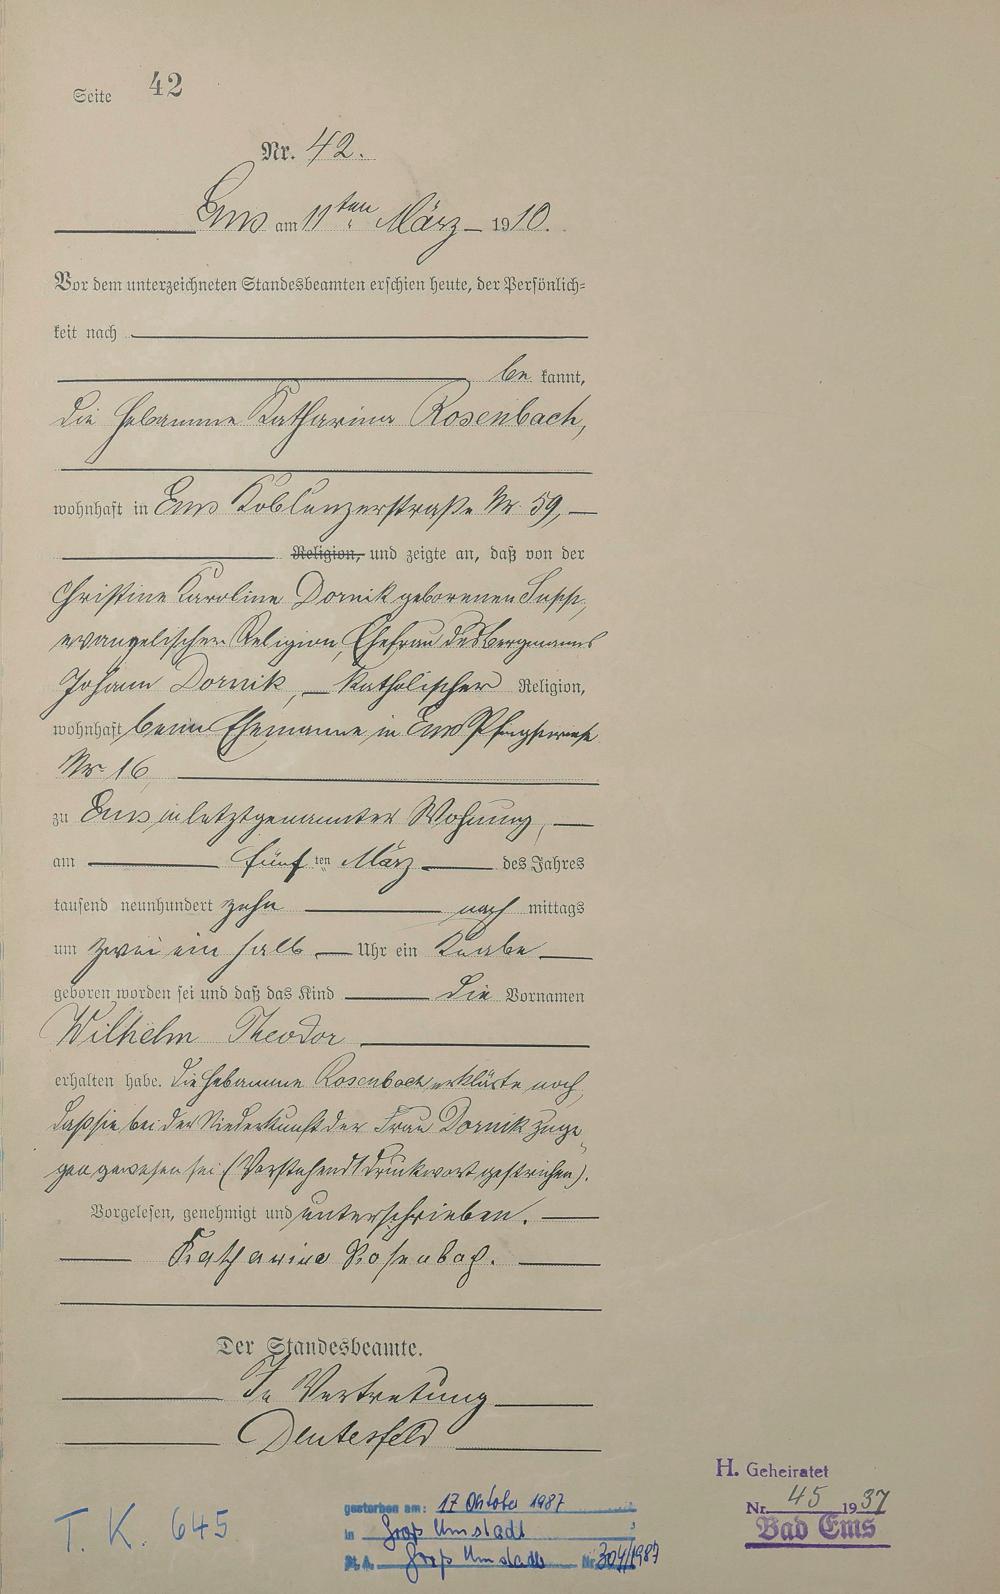 Seite 42
Nr. 42.
Ems am 11ten März 1910.
Vor dem unterzeichneten Standesbeamten erschien heute, der Persönlich=
keit nach
be kannt,
die Hebamme Katharina Rosenbach,
wohnhaft in Ems Koblenzerstraße Nr. 59,
Religion, und zeigte an, daß von der
Christine Karoline Dornik geborenen
evangelischer Religion, Ehefrau des Bergmanns
Johann Dornik, katholischer Religion,
wohnhaft beim Ehemanne in Ems
Nr. 16
zu Ems in letztgenannter Wohnung,
am fünf ten März des Jahres
tausend neunhundert zehn nach mittags
um zwei ein halb Uhr ein Knabe
geboren worden sei und daß das Kind die Vornamen
Wilhelm Theodor
erhalten habe. Die Hebamme Rosenbach erklärte noch,
daß sie bei der Niederkunft der Frau Dornik zuge-
gen gewesen sei (Vorstehend 1 Druckwort gestrichen).
Vorgelesen, genehmigt und unterschrieben.
Katharina Rosenbach.
Der Standesbeamte.
In Vertretung
T. K. 645
gestorben am: 17 Oktober 1987
in Groß Umstadt
St. A. Groß Umstadt Nr. 304/1987
H. Geheiratet
Nr. 45 1937
Bad Ems